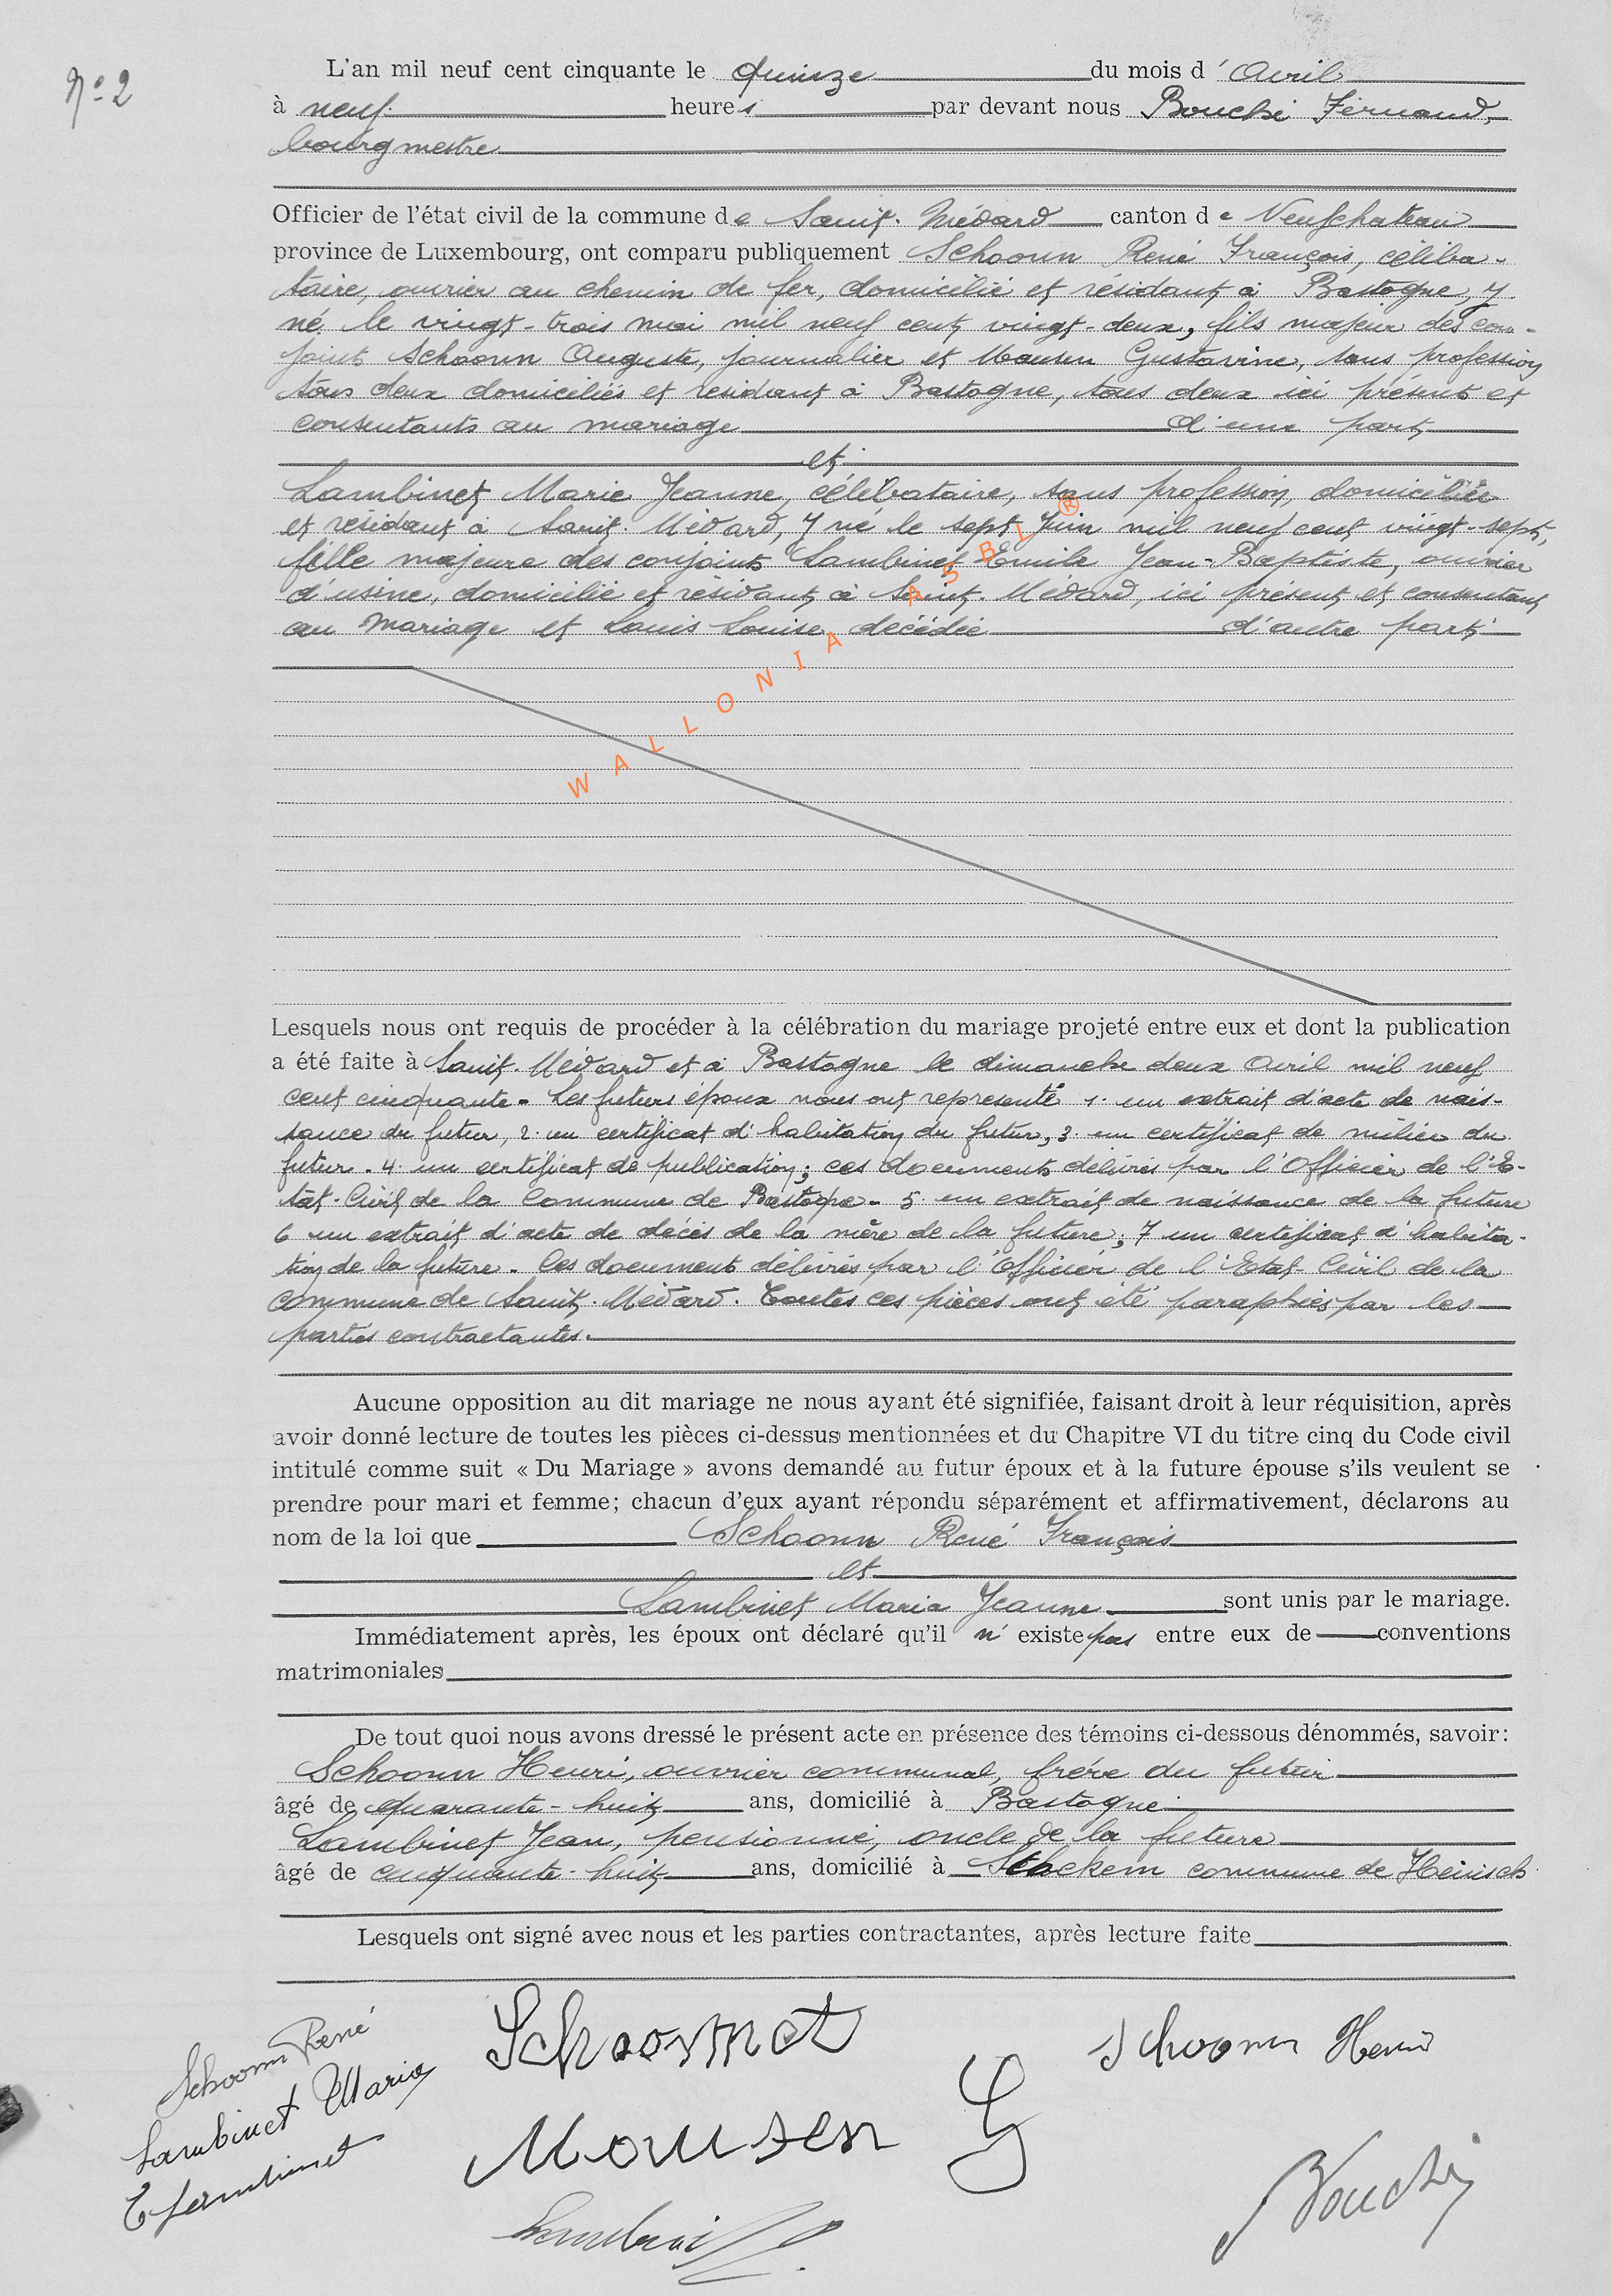 N° 2
L'an mil neuf cent cinquante le quinze du mois d' Avril
à neuf heures par devant nous Bouché Fernand,
bourgmestre
Officier de l'état civil de la commune de Saint-Médard canton de Neufchateau
province de Luxembourg, ont comparu publiquement Schoonn René François, céliba-
taire, ouvrier au chemin de fer, domicilié et résidant à Bastogne, y
né le vingt-trois mai mil neuf cent vingt-deux, fils majeur des con-
joints Schoonn Auguste, journalier et Mousen Gustavine, sans profession
tous deux domiciliés et résidant à Bastogne, tous deux ici présents et
consentants au mariage d'une part
et
Lambinet Marie Jeanne, célébataire, sans profession, domiciliée
et résidant à Saint-Médard, y né le sept Juin mil neuf cent vingt-sept,
fille majeure des conjoints Lambinet Emile Jean-Baptiste, ouvrier
d'usine, domicilié et résidant à Saint-Médard, ici présent et consentant
au mariage et Louis Louise décédée d'autre part
WALLONIA ASBL ®
Lesquels nous ont requis de procéder à la célébration du mariage projeté entre eux et dont la publication
a été faite à Saint-Médard et à Bastogne le dimanche deux Avril mil neuf
cent cinquante. Les futurs époux nous ont representé 1. un extrait d'acte de nais-
sance du futur, 2. un certificat d'habitation du futur, 3. un certificat de milice du
futur. 4. un certificat de publication; ces documents délivrés par l'Officier de l'E-
tat-Civil de la Commune de Bastogne. 5. un extrait de naissance de la future
6 un extrait d'acte de décès de la mère de la future; 7 un certificat d'habita-
tion de la future. Ces documents délivrés par l'Officier de l'Etat-Civil de la
commune de Saint-Médard. Toutes ces pièces ont été paraphées par les
parties contractantes.
Aucune opposition au dit mariage ne nous ayant été signifiée, faisant droit à leur réquisition, après
avoir donné lecture de toutes les pièces ci-dessus mentionnées et du Chapitre VI du titre cinq du Code civil
intitulé comme suit « Du Mariage » avons demandé au futur époux et à la future épouse s'ils veulent se
prendre pour mari et femme; chacun d'eux ayant répondu séparément et affirmativement, déclarons au
nom de la loi que Schoonn René François
et
Lambinet Maria Jeanne sont unis par le mariage.
Immédiatement après, les époux ont déclaré qu'il n' existe pas entre eux de conventions
matrimoniales
De tout quoi nous avons dressé le présent acte en présence des témoins ci-dessous dénommés, savoir:
Schoonn Henri, ouvrier communal, frère du futur
âgé de quarante-huit ans, domicilié à Bastogne
Lambinet Jean, pensionné, oncle de la future
âgé de cinquante-huit ans, domicilié à Stockem commune de Heinsch
Lesquels ont signé avec nous et les parties contractantes, après lecture faite
Schoonn René
Lambinet Maria
E Lambinet
Schoonn
Mousen G
Lambinet
Schoonn Henri
Bouché